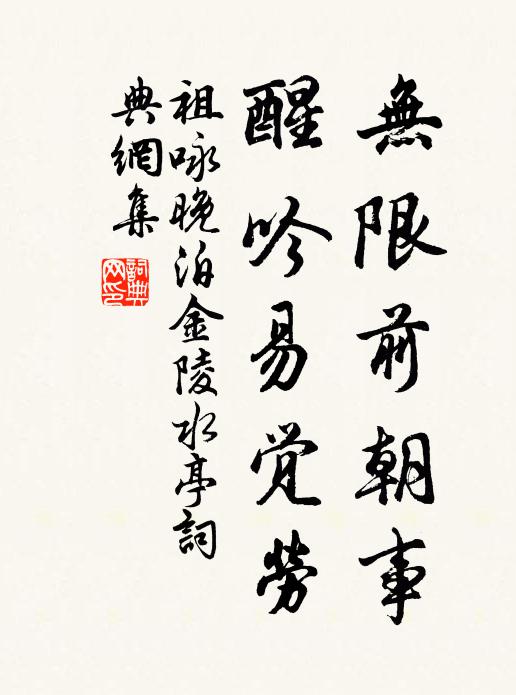 無限前朝事
醒吟易觉勞
祖咏晚泊金陵水亭詞
典網集
詞典
网印